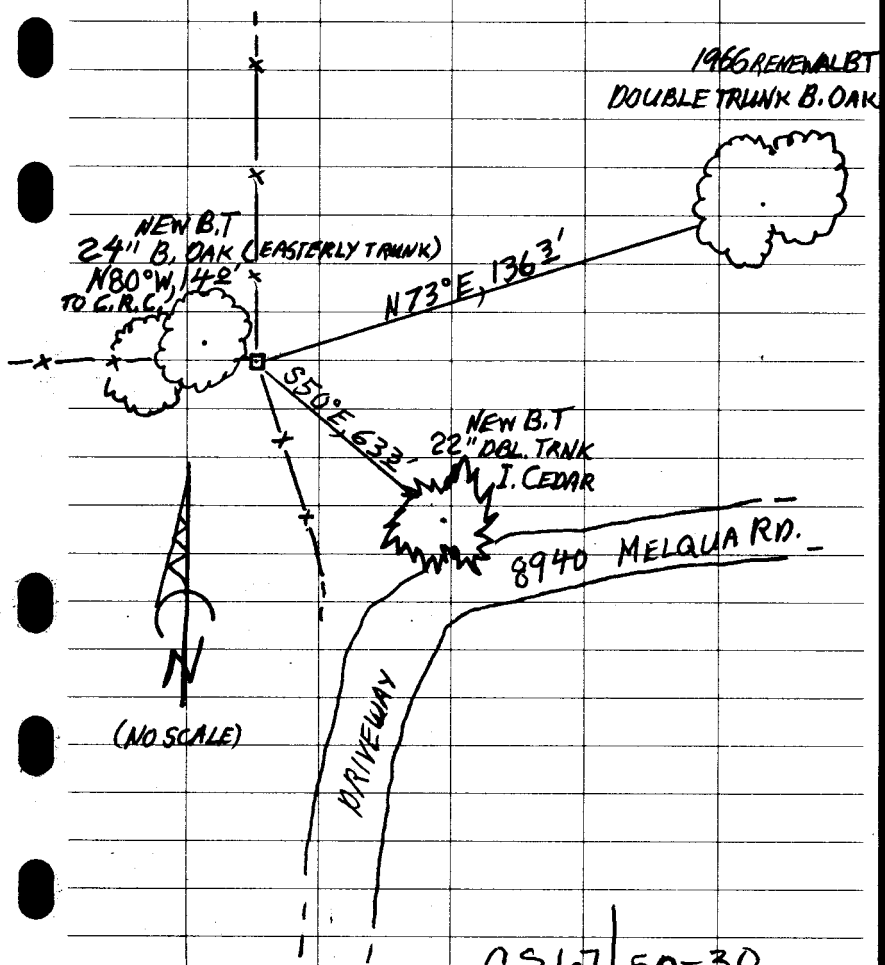 1966 RENEWAL BT
DOUBLE TRUNK B. OAK
NEW B.T
24" B. OAK (EASTERLY TRUNK)
N80°W, 14.0'
TO C.R.C.
N73°E, 136.3'
S50°E, 63.3'
NEW B.T
22" DBL. TRNK
I. CEDAR
8940 MELQUA RD.
N
(NO SCALE)
DRIVEWAY
50-30